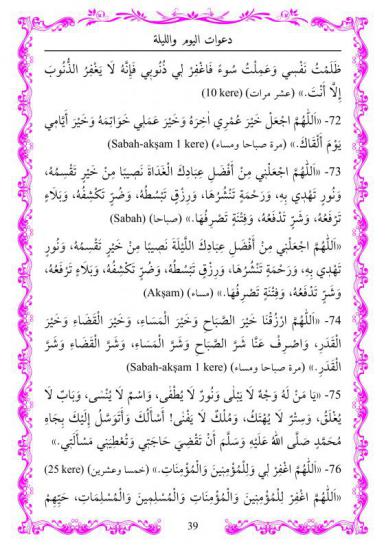 دعوات اليوم والليلة
ظَلَمْتُ نَفْسِي وَعَمِلْتُ سُوءً فَاغْفِرْ لِي ذُنُوبِي فَإِنَّهُ لَا يَغْفِرُ الذُّنُوبَ
إِلَّا أَنْتَ.» (عشر مرات) (10 kere)
72- «اَللّٰهُمَّ اجْعَلْ خَيْرَ عُمْرِي اٰخِرَهُ وَخَيْرَ عَمَلِي خَوَاتِمَهُ وَخَيْرَ أَيَّامِي
يَوْمَ أَلْقَاكَ.» (مرة صباحا ومساء) (Sabah-akşam 1 kere)
73- «اَللّٰهُمَّ اجْعَلْنِي مِنْ أَفْضَلِ عِبَادِكَ الْغَدَاةَ نَصِيبًا مِنْ خَيْرٍ تَقْسِمُهُ،
وَنُورٍ تَهْدِي بِهِ، وَرَحْمَةٍ تَنْشُرُهَا، وَرِزْقٍ تَبْسُطُهُ، وَضُرٍّ تَكْشِفُهُ، وَبَلَاءٍ
تَرْفَعُهُ، وَشَرٍّ تَدْفَعُهُ، وَفِتْنَةٍ تَصْرِفُهَا.» (صباحا) (Sabah)
«اَللّٰهُمَّ اجْعَلْنِي مِنْ أَفْضَلِ عِبَادِكَ اللَّيْلَةَ نَصِيبًا مِنْ خَيْرٍ تَقْسِمُهُ، وَنُورٍ
تَهْدِي بِهِ، وَرَحْمَةٍ تَنْشُرُهَا، وَرِزْقٍ تَبْسُطُهُ، وَضُرٍّ تَكْشِفُهُ، وَبَلَاءٍ تَرْفَعُهُ،
وَشَرٍّ تَدْفَعُهُ، وَفِتْنَةٍ تَصْرِفُهَا.» (مساء) (Akşam)
74- «اَللّٰهُمَّ ارْزُقْنَا خَيْرَ الصَّبَاحِ وَخَيْرَ الْمَسَاءِ، وَخَيْرَ الْقَضَاءِ وَخَيْرَ
الْقَدَرِ، وَاصْرِفْ عَنَّا شَرَّ الصَّبَاحِ وَشَرَّ الْمَسَاءِ، وَشَرَّ الْقَضَاءِ وَشَرَّ
الْقَدَرِ.» (مرة صباحا ومساء) (Sabah-akşam 1 kere)
75- «يَا مَنْ لَهُ وَجْهٌ لَا يَبْلَى وَنُورٌ لَا يُطْفَى، وَاسْمٌ لَا يُنْسَى، وَبَابٌ لَا
يُغْلَقُ، وَسِتْرٌ لَا يُهْتَكُ، وَمُلْكٌ لَا يَفْنَى! أَسْأَلُكَ وَأَتَوَسَّلُ إِلَيْكَ بِجَاهِ
مُحَمَّدٍ صَلَّى اللّٰهُ عَلَيْهِ وَسَلَّمَ أَنْ تَقْضِيَ حَاجَتِي وَتُعْطِيَنِي مَسْأَلَتِي.»
76- «اَللّٰهُمَّ اغْفِرْ لِي وَلِلْمُؤْمِنِينَ وَالْمُؤْمِنَاتِ.» (خمسا وعشرين) (25 kere)
«اَللّٰهُمَّ اغْفِرْ لِلْمُؤْمِنِينَ وَالْمُؤْمِنَاتِ وَالْمُسْلِمِينَ وَالْمُسْلِمَاتِ، حَيِّهِمْ
39